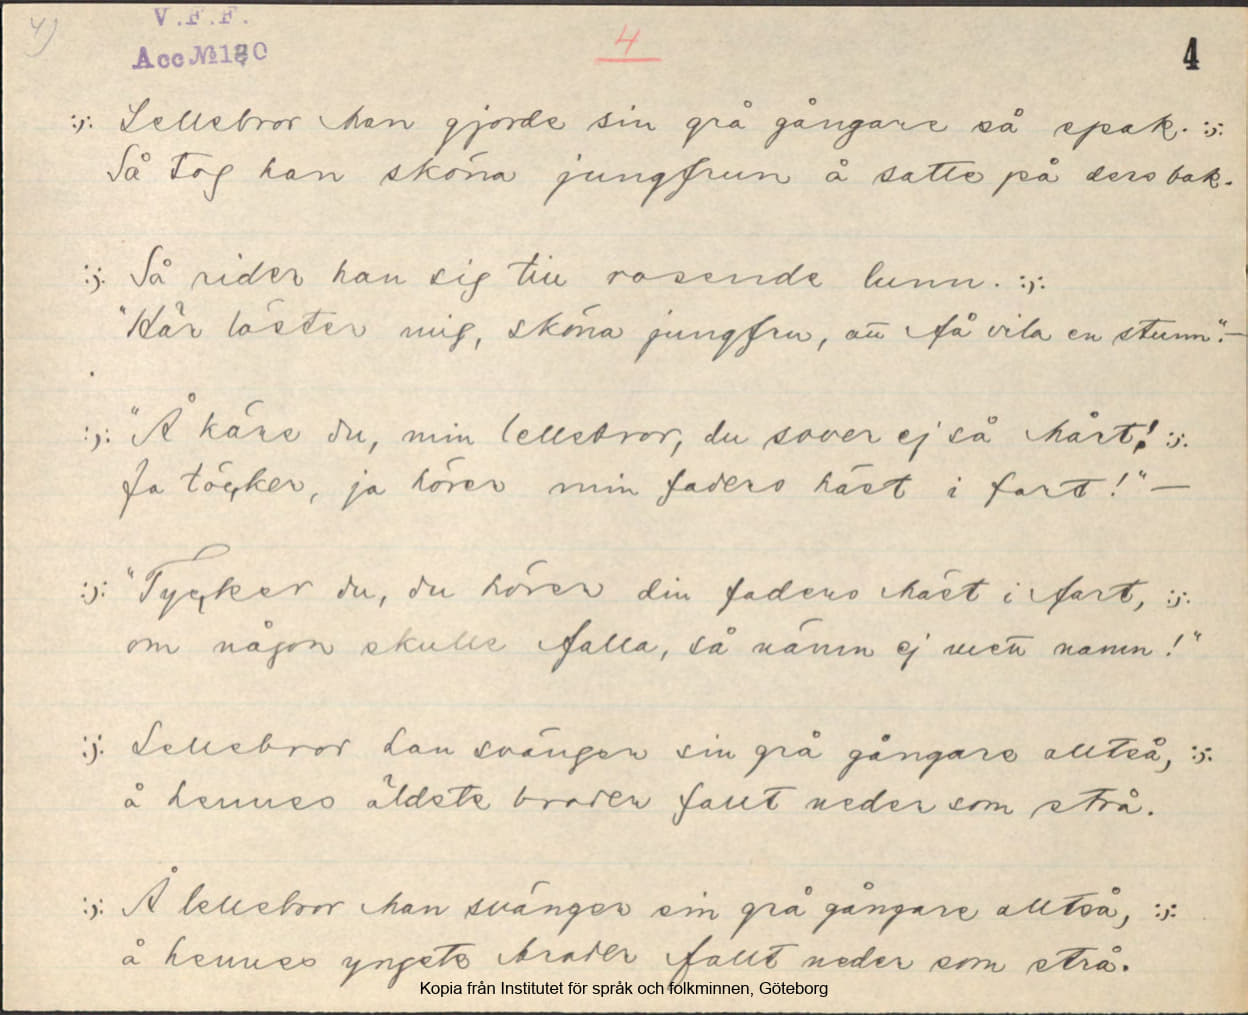 4)
V.F.F.
Acc № 180
4
4
:;: Lellebror han gjorde sin grå gångare så spak. :;:
Så tog han sköna jungfrun å satte på ders bak.
:;: Så rider han sig till rosende lunn. :;:
"Här löster mig, sköna jungfru, att få vila en stunn". —
:;: "Å käre du, min lellebror, du sover ej så hårt! :;:
Ja töcker, ja hörer min faders häst i fart!" —
:;: "Tycker du, du hörer din faders häst i fart, :;:
om någon skulle falla, så nämn ej mett namn!"
:;: Lellebror han svänger sin grå gångare alltså, :;:
å hennes äldste broder fallt neder som strå.
:;: Å lellebror han svänger sin grå gångare alltså, :;:
å hennes yngste broder fallt neder som strå.
Kopia från Institutet för språk och folkminnen, Göteborg